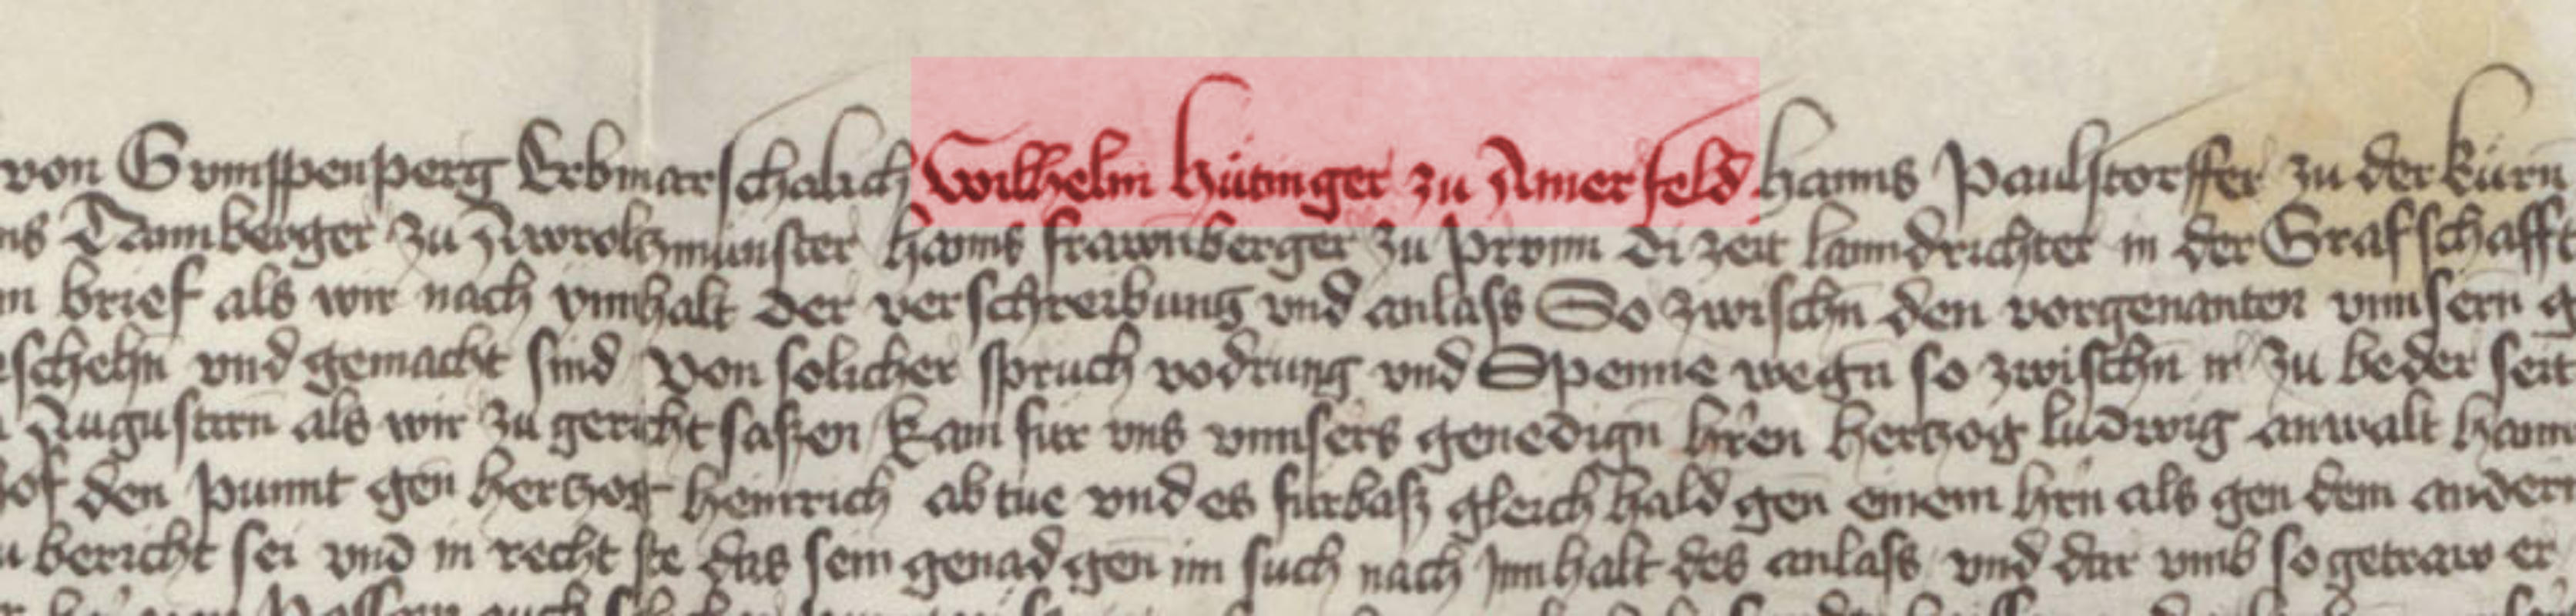 von Gumppenperg Erbmarschalich Wilhelm Hütinger zu Amerfeld Hanns Paulstorffer zu der kürn
ns Tannberger zu Awroltzmünster Hanns frawnberger zu Prunn di zeit lanndrichter in der Grafschafft
n brief als wir nach ynnhalt der verschreibung vnd anlass So zwischn den vorgenanten vnnsern g
schehn vnd gemacht sind von solicher spruch vodrung vnd Spenne wegn so zwischn ir zu beder seit
Augustein als wir zu gericht saszen kam für vns vnnsers genedign hren hertzog ludwig anwalt hann
hof den punnt gen hertzog heinrich ab tue vnd es fürbasz gleich hald gen einem hrn als gen dem andern
bericht sei vnd in recht ste das sein genad gen im such nach Innhalt des anlass vnd dar vmb so getraw er